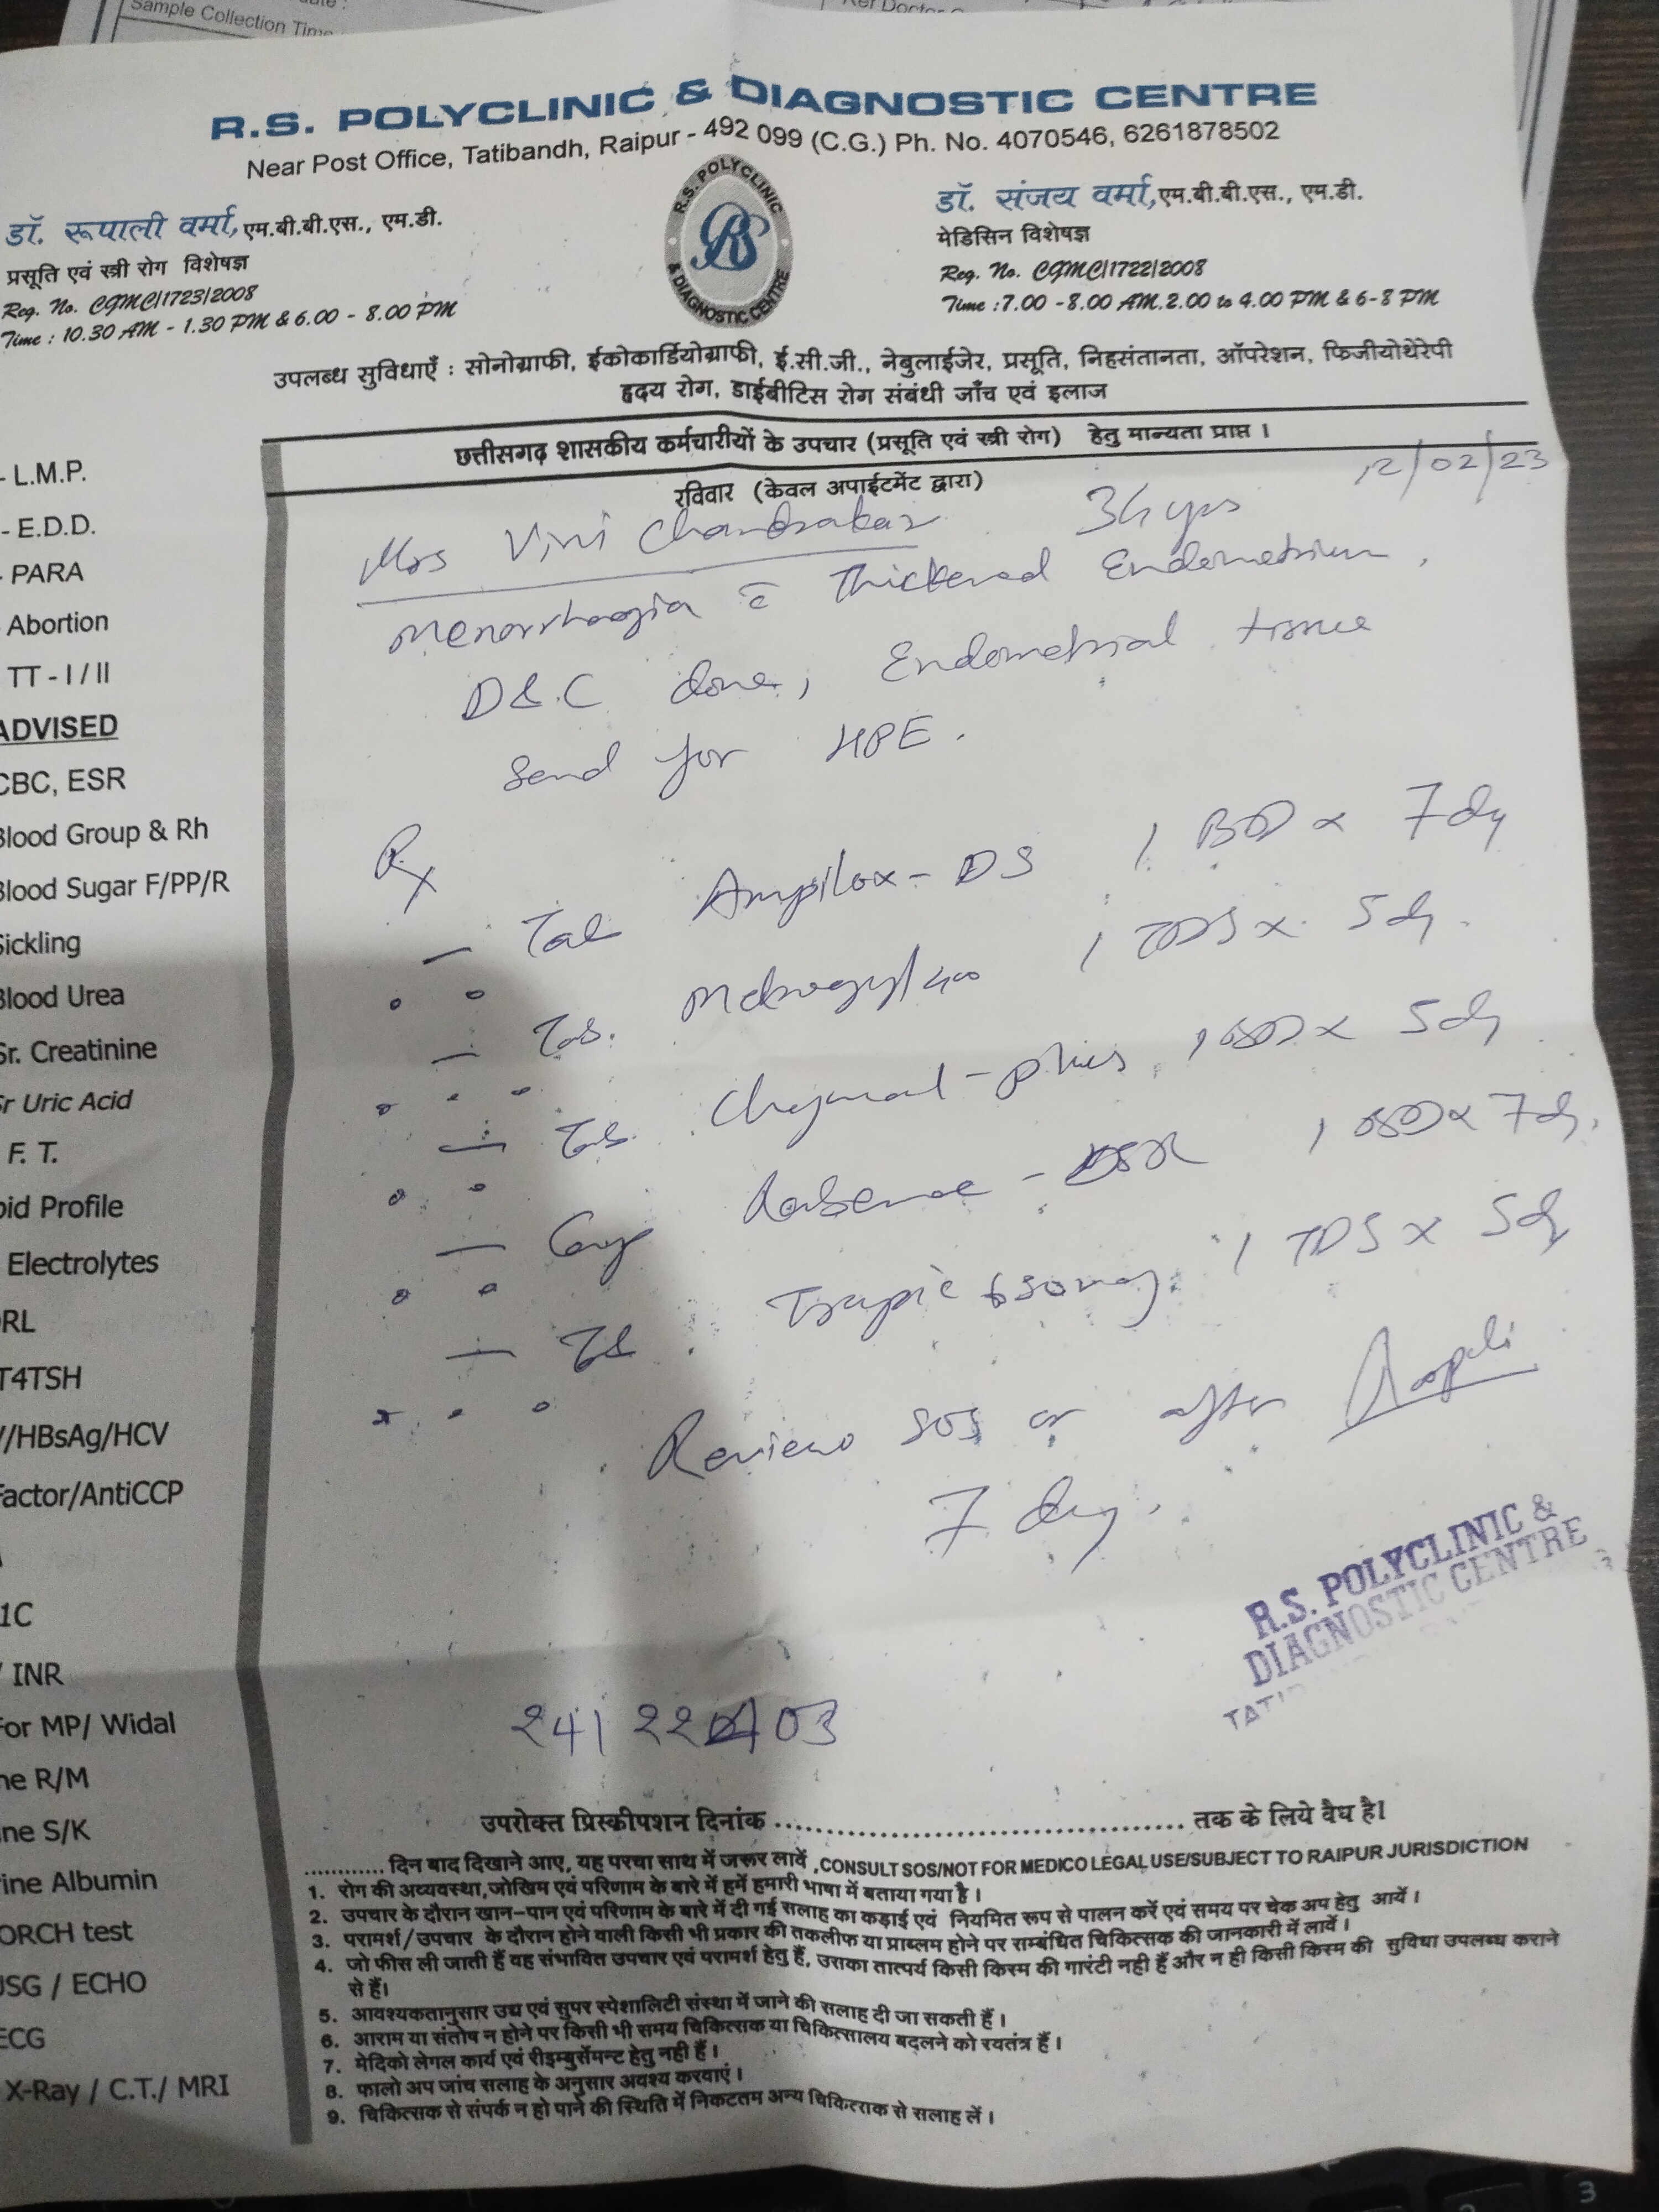 Sample Collection Time
R.S. POLYCLINIC & DIAGNOSTIC CENTRE
Near Post Office, Tatibandh, Raipur - 492 099 (C.G.) Ph. No. 4070546, 6261878502
R.S. POLYCLINIC & DIAGNOSTIC CENTRE
डॉ. रूपाली वर्मा, एम.बी.बी.एस., एम.डी.
प्रसूति एवं स्त्री रोग विशेषज्ञ
Reg. No. CGMC/1723/2008
Time : 10.30 AM - 1.30 PM & 6.00 - 8.00 PM
डॉ. संजय वर्मा, एम.बी.बी.एस., एम.डी.
मेडिसिन विशेषज्ञ
Reg. No. CGMC/1722/2008
Time : 7.00 - 8.00 AM. 2.00 to 4.00 PM & 6-8 PM
उपलब्ध सुविधाएँ : सोनोग्राफी, ईकोकार्डियोग्राफी, ई.सी.जी., नेबुलाईजेर, प्रसूति, निहसंतानता, ऑपरेशन, फिजीयोथेरेपी
हृदय रोग, डाईबीटिस रोग संबंधी जाँच एवं इलाज
छत्तीसगढ़ शासकीय कर्मचारीयों के उपचार (प्रसूति एवं स्त्री रोग) हेतु मान्यता प्राप्त ।
रविवार (केवल अपाईटमेंट द्वारा)
12/02/23
Mrs Vini Chandrakar 34 yrs
Menorrhagia c̄ Thickened Endometrium.
D&C done, Endometrial tissue
Send for HPE.
Rx
— Tab Ampilox-DS 1 BD x 7 dy
— Tab. Metrogyl 400 1 TDS x 5 dy.
— Tab. Chymoral-plus 1 BD x 5 dy
— Cap 1 BD x 7 dy.
— Tab Trapic 1 TDS x 5 dy
Review SOS or after
7 day.
R.S. POLYCLINIC &
DIAGNOSTIC CENTRE
- L.M.P.
- E.D.D.
- PARA
Abortion
TT - I / II
ADVISED
CBC, ESR
Blood Group & Rh
Blood Sugar F/PP/R
Sickling
Blood Urea
Sr. Creatinine
Sr Uric Acid
F. T.
Profile
Electrolytes
T4TSH
/HBsAg/HCV
Factor/AntiCCP
1C
/ INR
For MP/ Widal
R/M
S/K
Albumin
ORCH test
USG / ECHO
ECG
X-Ray / C.T./ MRI
उपरोक्त प्रिस्क्रीपशन दिनांक ........................................ तक के लिये वैध है।
............ दिन बाद दिखाने आए, यह परचा साथ में जरूर लावें ,CONSULT SOS/NOT FOR MEDICO LEGAL USE/SUBJECT TO RAIPUR JURISDICTION
1. रोग की अव्यवस्था,जोखिम एवं परिणाम के बारे में हमें हमारी भाषा में बताया गया है ।
2. उपचार के दौरान खान-पान एवं परिणाम के बारे में दी गई सलाह का कड़ाई एवं नियमित रूप से पालन करें एवं समय पर चेक अप हेतु आयें ।
3. परामर्श/उपचार के दौरान होने वाली किसी भी प्रकार की तकलीफ या प्राब्लम होने पर सम्बंधित चिकित्सक की जानकारी में लावें ।
4. जो फीस ली जाती हैं वह संभावित उपचार एवं परामर्श हेतु हैं, उसका तात्पर्य किसी किस्म की गारंटी नही हैं और न ही किसी किस्म की सुविधा उपलब्ध कराने
से हैं।
5. आवश्यकतानुसार उच्च एवं सुपर स्पेशालिटी संस्था में जाने की सलाह दी जा सकती हैं ।
6. आराम या संतोष न होने पर किसी भी समय चिकित्सक या चिकित्सालय बदलने को स्वतंत्र हैं ।
7. मेदिको लेगल कार्य एवं रीइम्बुर्सेमन्ट हेतु नही हैं ।
8. फालो अप जांच सलाह के अनुसार अवश्य करवाएं ।
9. चिकित्सक से संपर्क न हो पाने की स्थिति में निकटतम अन्य चिकित्सक से सलाह लें ।